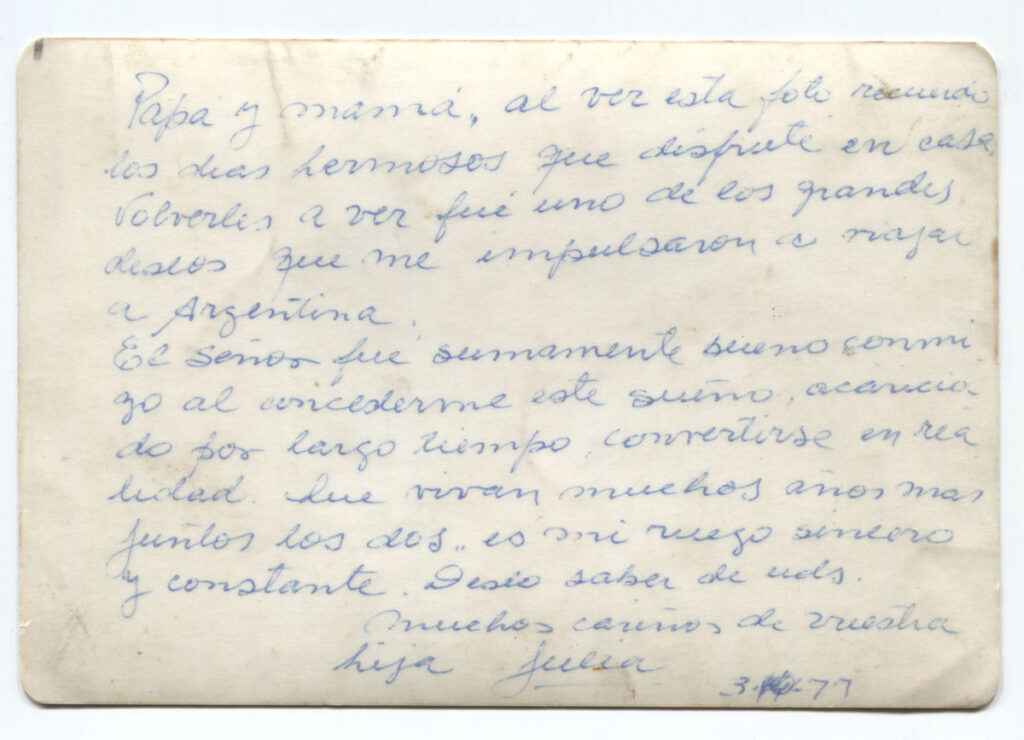 Papá y mamá, al ver esta foto recuerdo
los dias hermosos que disfruté en casa.
Volverles a ver fué uno de los grandes
deseos que me impulsaron a viajar
a Argentina.
El Señor fué sumamente bueno conmi-
go al concederme este sueño, acaricia-
do por largo tiempo, convertirse en rea
lidad. Que vivan muchos años mas
juntos los dos, es mi ruego sincero
y constante. Deseo saber de uds.
Muchos cariños de vuestra
hija Julia
3- -77